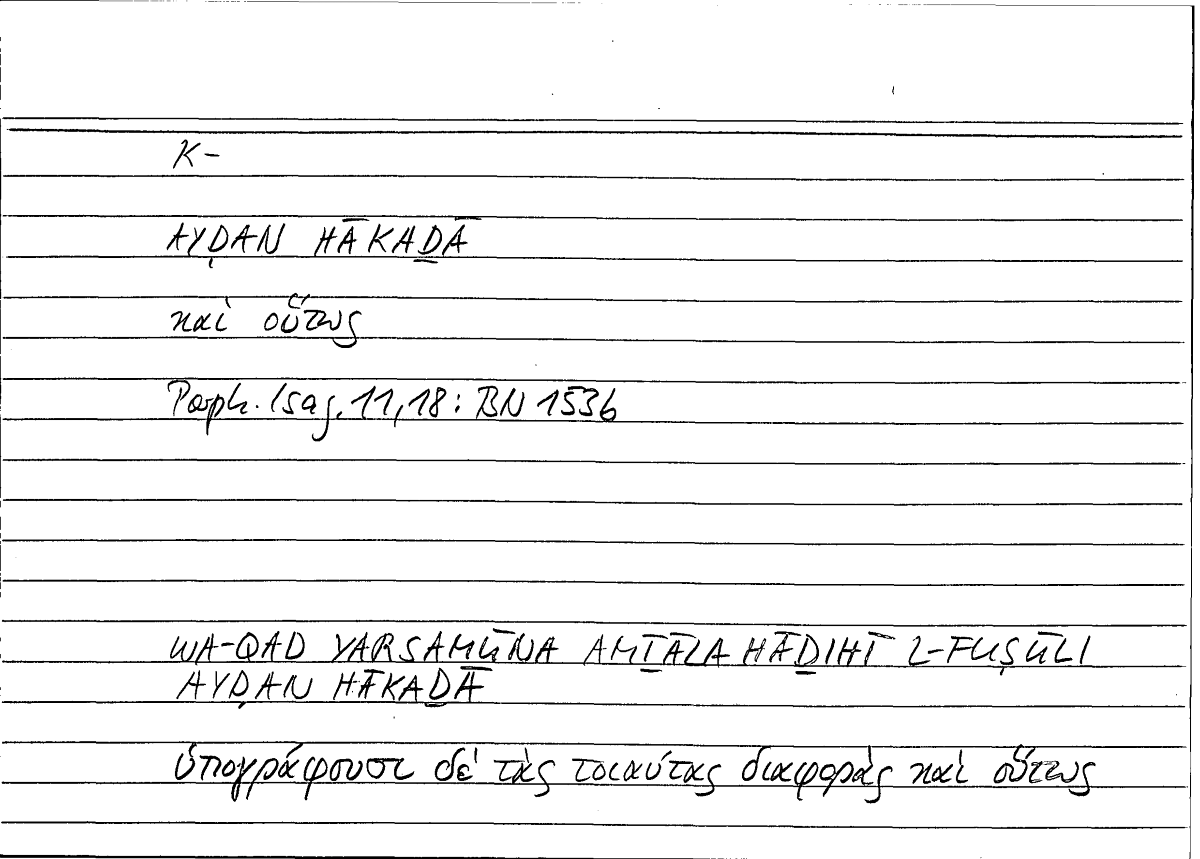 K-
AYḌAN HĀKAḎĀ
καὶ οὕτως
Porph. Isag. 11,18: BN 1536
WA-QAD YARSAMŪNA AMṮĀLA HĀḎIHĪ L-FUṢŪLI
AYḌAN HĀKAḎĀ
ὑπογράφουσι δὲ τὰς τοιαύτας διαφορὰς καὶ οὕτως